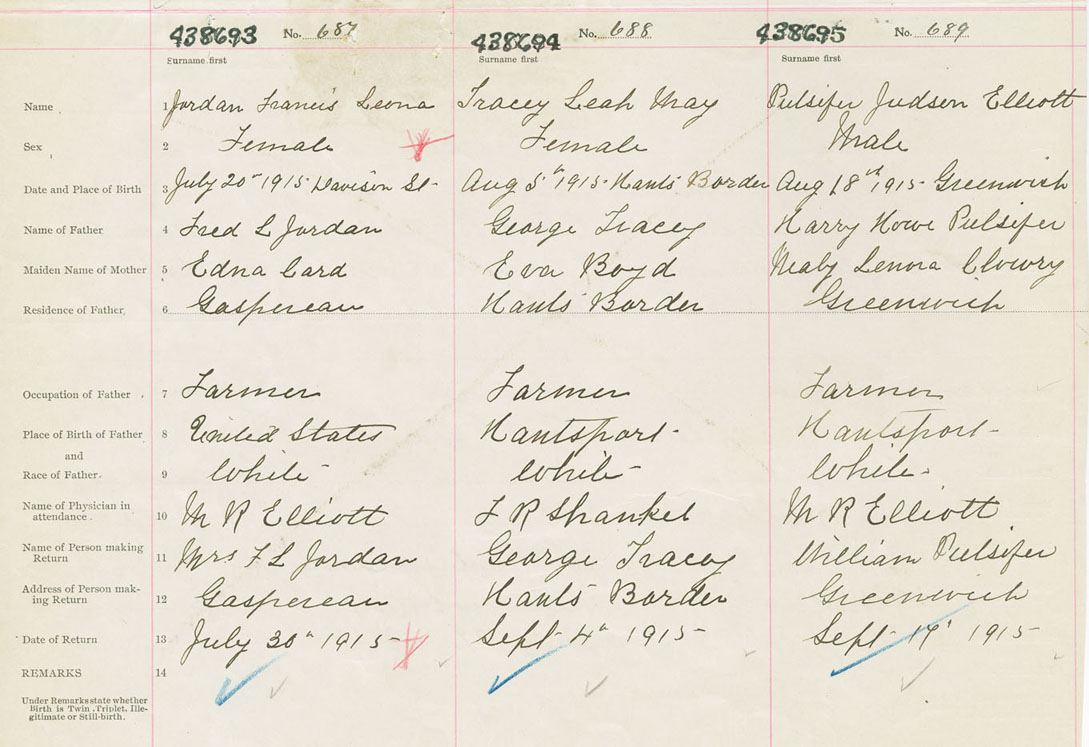 438693 No. 687 438694 No. 688 438695 No. 689
Surname first Surname first Surname first
Name 1 Jordan Francis Leona Tracey Leah May Pulsifer Judson Elliott
Sex 2 Female Female Male
Date and Place of Birth 3 July 20th 1915 Davison St Aug 5th 1915 Hants Border Aug 18th 1915 Greenwich
Name of Father 4 Fred L Jordan George Tracey Harry Howe Pulsifer
Maiden Name of Mother 5 Edna Card Eva Boyd Lenora
Residence of Father 6 Gaspereau Hants Border Greenwich
Occupation of Father 7 Farmer Farmer Farmer
Place of Birth of Father 8 United States Hantsport Hantsport
and
Race of Father 9 White White White
Name of Physician in
attendance 10 M R Elliott F R Shankel M R Elliott
Name of Person making
Return 11 Mrs F L Jordan George Tracey William Pulsifer
Address of Person mak-
ing Return 12 Gaspereau Hants Border Greenwich
Date of Return 13 July 30th 1915 Sept 4th 1915 Sept 1915
REMARKS 14
Under Remarks state whether
Birth is Twin, Triplet, Ille-
gitimate or Still-birth.